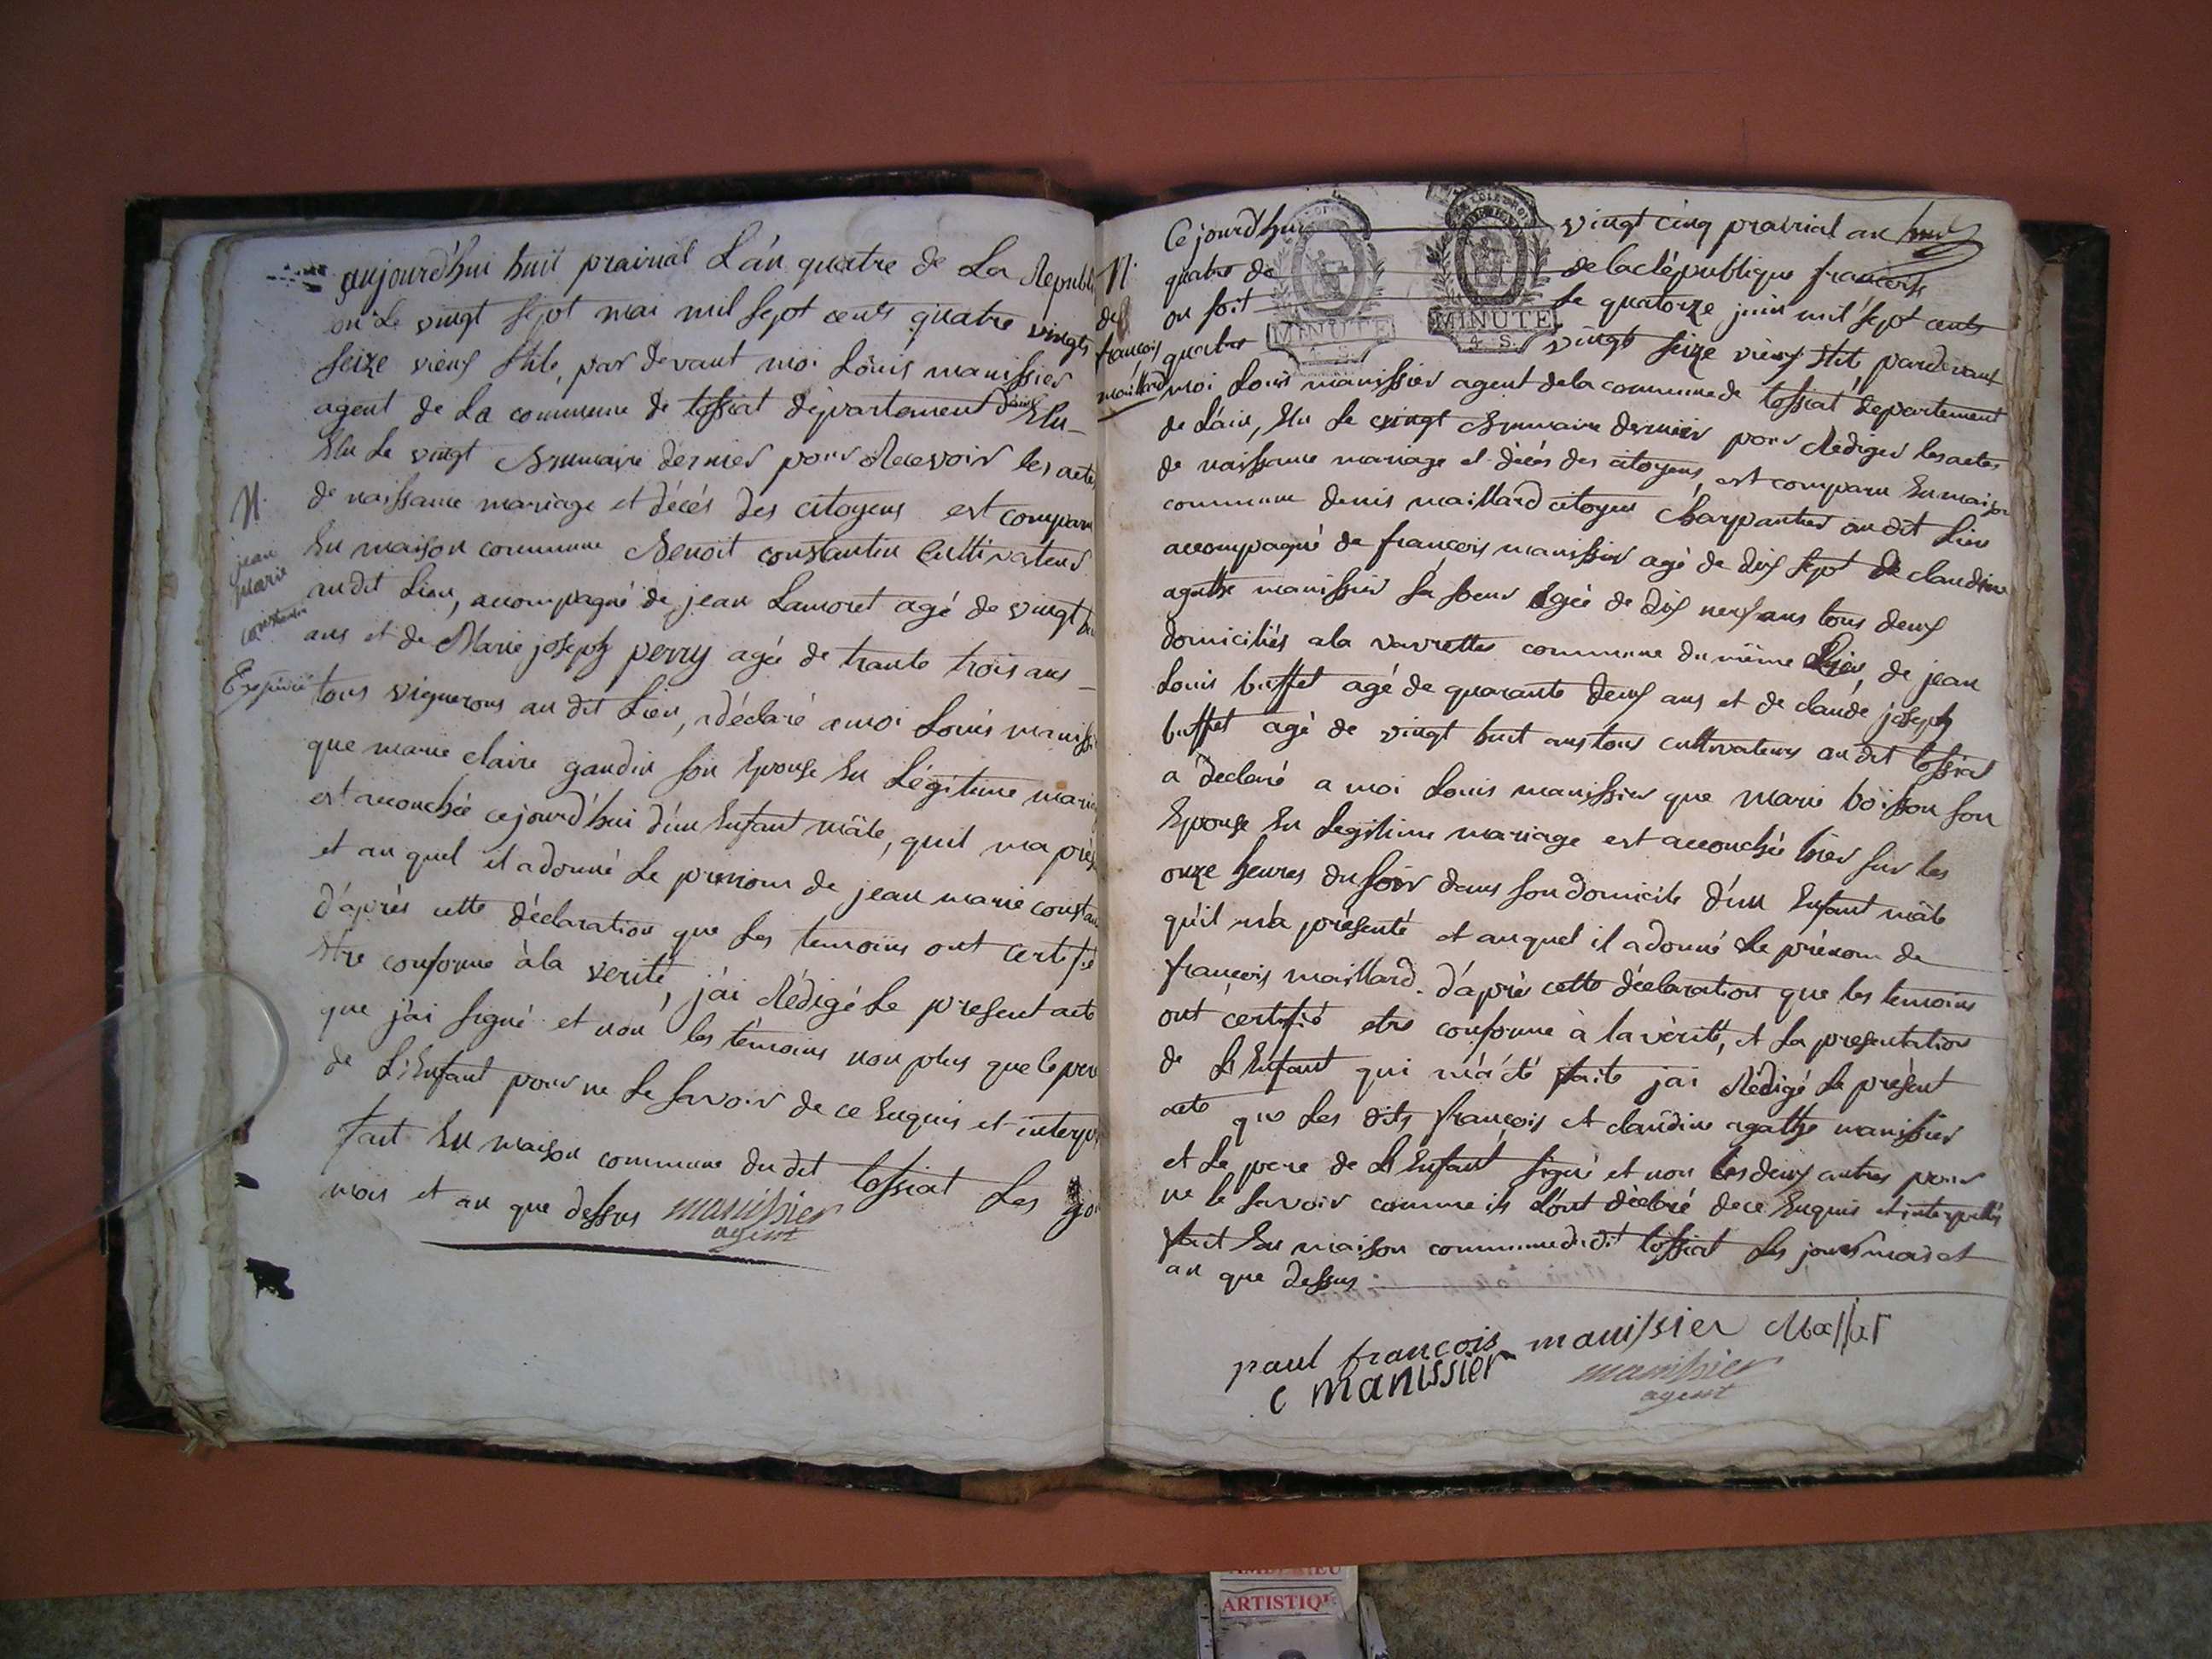 aujourd'hui huit prairial L'an quatre de La Republi
ou Le vingt sept mai mil sept cents quatre vingts
seize vieux stile, par devant moi Louis manissier
agent de La commune de tossiat département d'ain Elu
Elu Le vingt Brumaire dernier pour Recevoir les actes
N.
de naissance mariage et décés des citoyens est comparu
jean
marie
constantin
En maison commune Benoit constantin Cultivateur
au dit Lieu, accompagné de jean Lamoret agé de vingt
ans et de Marie joseph perry agée de trante trois ans
tous vignerons au dit Lieu, a déclaré a moi Louis maniss
que marie claire gaudin son Epouse En Légitime maria
est accouchée cejourd'hui d'un Enfant mâle, quil ma prés
et au quel il a donné Le prénom de jean marie constan
d'aprés cette déclaration que Les temoins ont certifié
Etre conforme à la verité, j'ai Rédigé Le present acte
que j'ai signé et non les témoins non plus que le per
de L'Enfant pour ne Le savoir de ce Enquis et interp
fait En maison commune du dit tossiat Les jo
mois et an que dessus manissier
agent
N.
de
françois
maillard
Ce jourd'hui vingt cinq prairial an
quatre de de la République françoise
ou soit Le quatorze juin mil sept cents
quatre vingts seize vieux stile pardevant
MINUTE
MINUTE
4. S.
moi Louis manissier agent de la commune de tossiat departement
de L'ain, Elu Le vingt Brumaire dernier pour Rediger les actes
de naissance mariage et décés des citoyens, est comparu En maison
commune denis maillard citoyen charpantier au dit Lieu
accompagné de françois manissier agé de dix sept de claudine
agathe manissier sa soeur agée de dix neuf ans tous deux
domiciliés a la vavrette commune du même Lieu, de jean
Louis buffet agé de quarante deux ans et de claude joseph
buffet agé de vingt huit ans tous cultivateurs au dit tossiat
a declaré a moi Louis manissier que marie boisson son
Epouse En Legitime mariage est accouchée hier sur les
onze heures du soir dans son domicile d'un Enfant mâle
qu'il m'a présenté et auquel il a donné Le prénom de
françois maillard. d'aprés cette déclaration que les temoins
ont certifié etre conforme à la vérité, et La presentation
de L'Enfant qui m'a été faite jai Rédigé Le présent
acte que Les dits françois et claudine agathe manissier
et Le pere de L'Enfant signé et non les deux autres pour
ne le savoir comme ils L'ont déclaré de ce Enquis et interpellés
fait En maison commune du dit tossiat Les jour mois et
an que dessus
paul françois manissier
c manissier
manissier
agent
ARTISTIQU